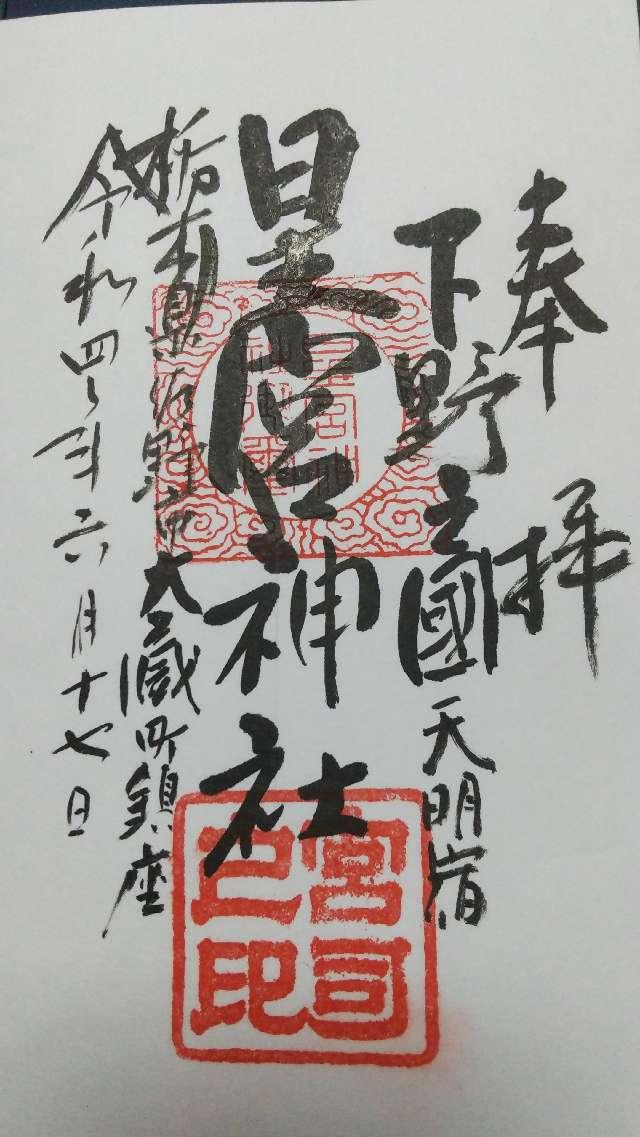 奉拝
下野之國天明宿
星宮神社
栃木県佐野市大蔵町鎮座
令和四年六月十七日
宮司之印